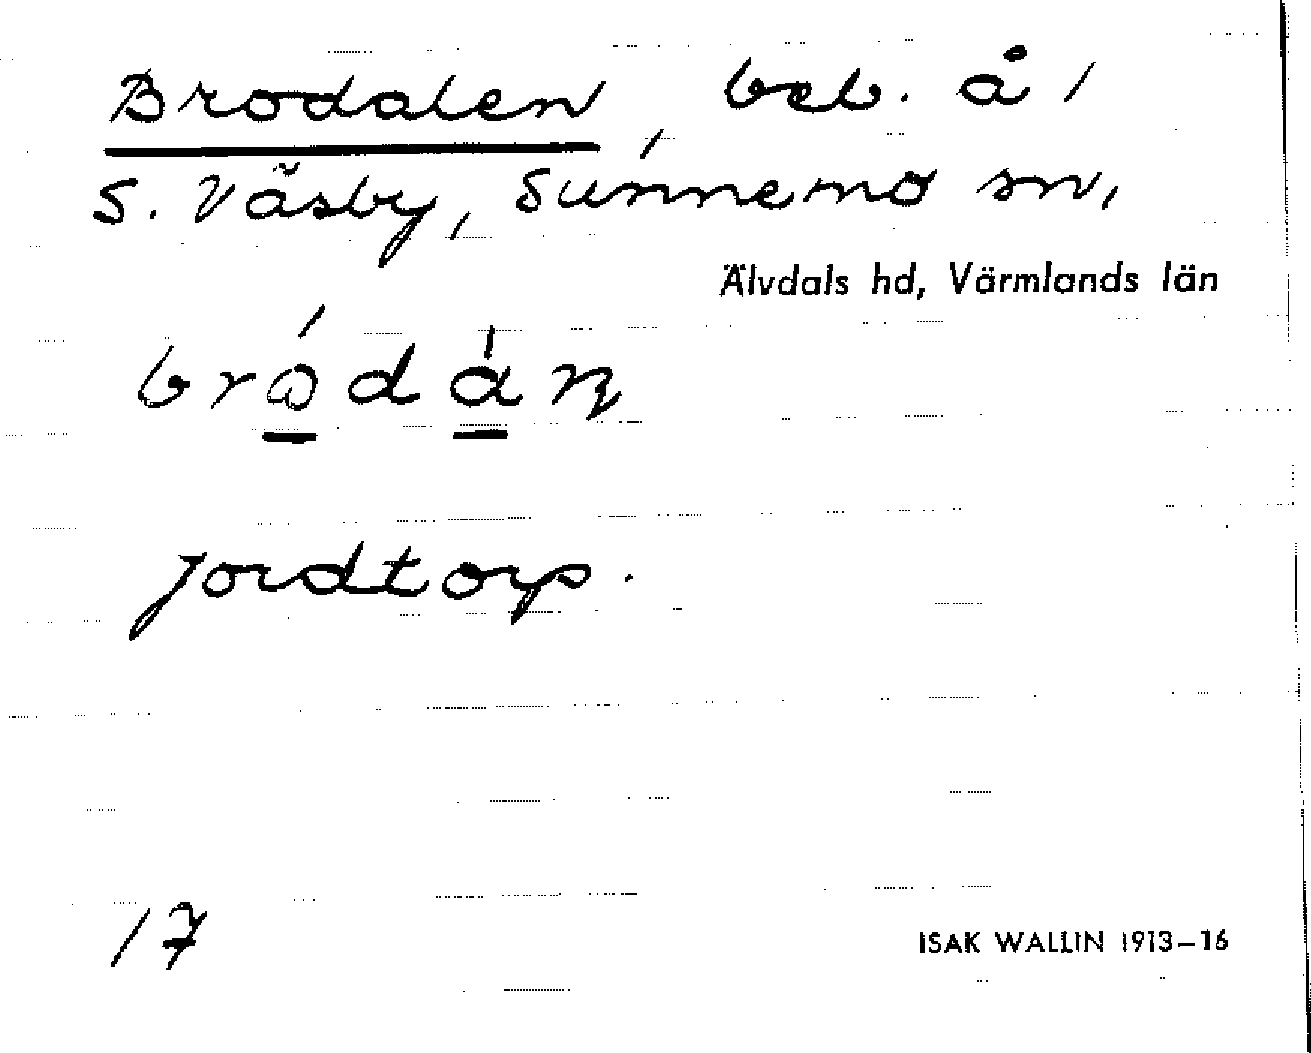 Brodalen, beb. å /
S. Väsby, Sunnemo sn,
Älvdals hd, Värmlands län
jordtorp.
17
ISAK WALLIN 1913–16